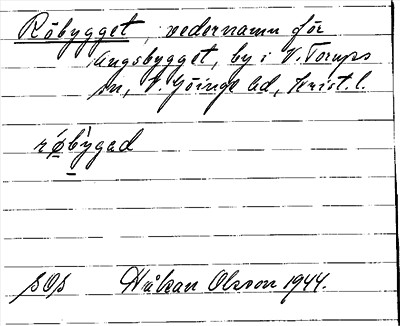 Röbygget, vedernamn för
Ängsbygget, by i V. Torups
sn, V. Göinge hd, Krist. l.
røby̍gəd
SOS Håkan Olsson 1944.